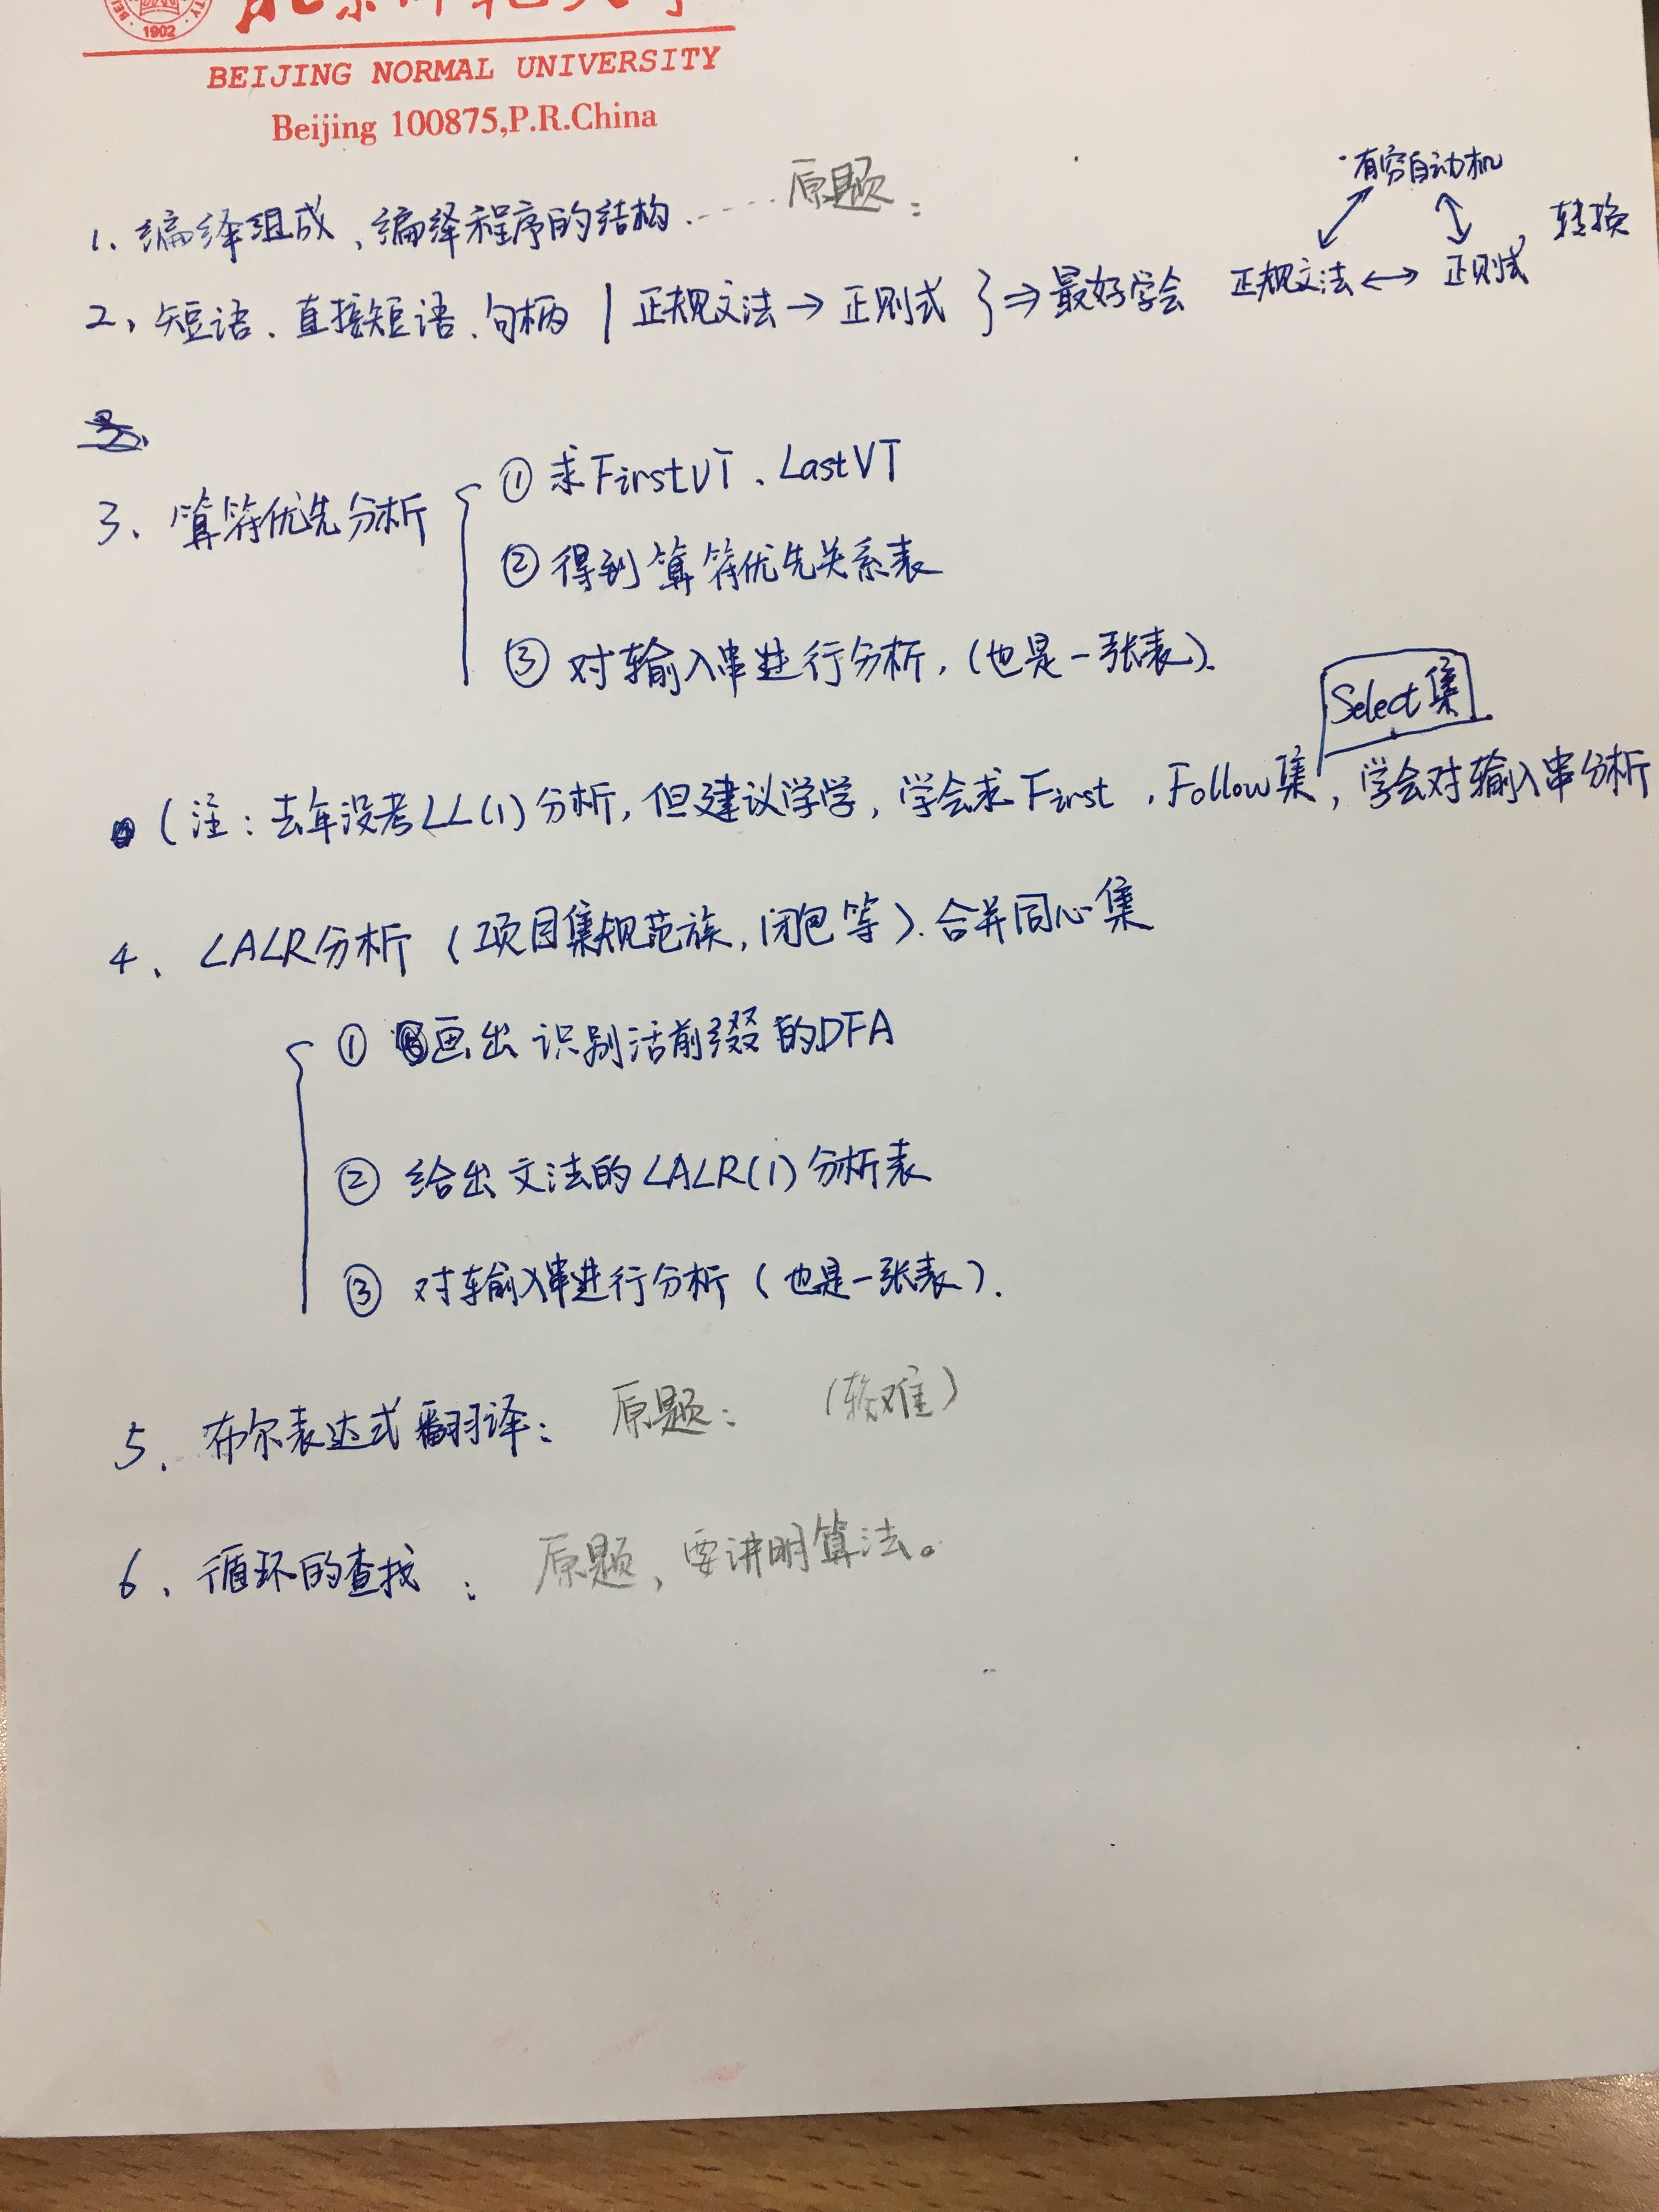 1902
BEIJING NORMAL UNIVERSITY
Beijing 100875,P.R.China
1、编绎组成、编绎程序的结构.----原题：
有穷自动机
正规文法 ↔ 正则式 转换
2、短语、直接短语、句柄 | 正规文法 → 正则式 } ⇒ 最好学会
3、算符优先分析
① 求FirstVT、LastVT
② 得到算符优先关系表
③ 对输入串进行分析,(也是一张表).
Select集
(注：去年没考LL(1)分析,但建议学学,学会求First,Follow集,学会对输入串分析
4、LALR分析(项目集规范族,闭包等).合并同心集
① 画出识别活前缀的DFA
② 给出文法的LALR(1)分析表
③ 对输入串进行分析(也是一张表).
5、布尔表达式翻译：原题：(较难)
6、循环的查找：原题,要讲明算法。